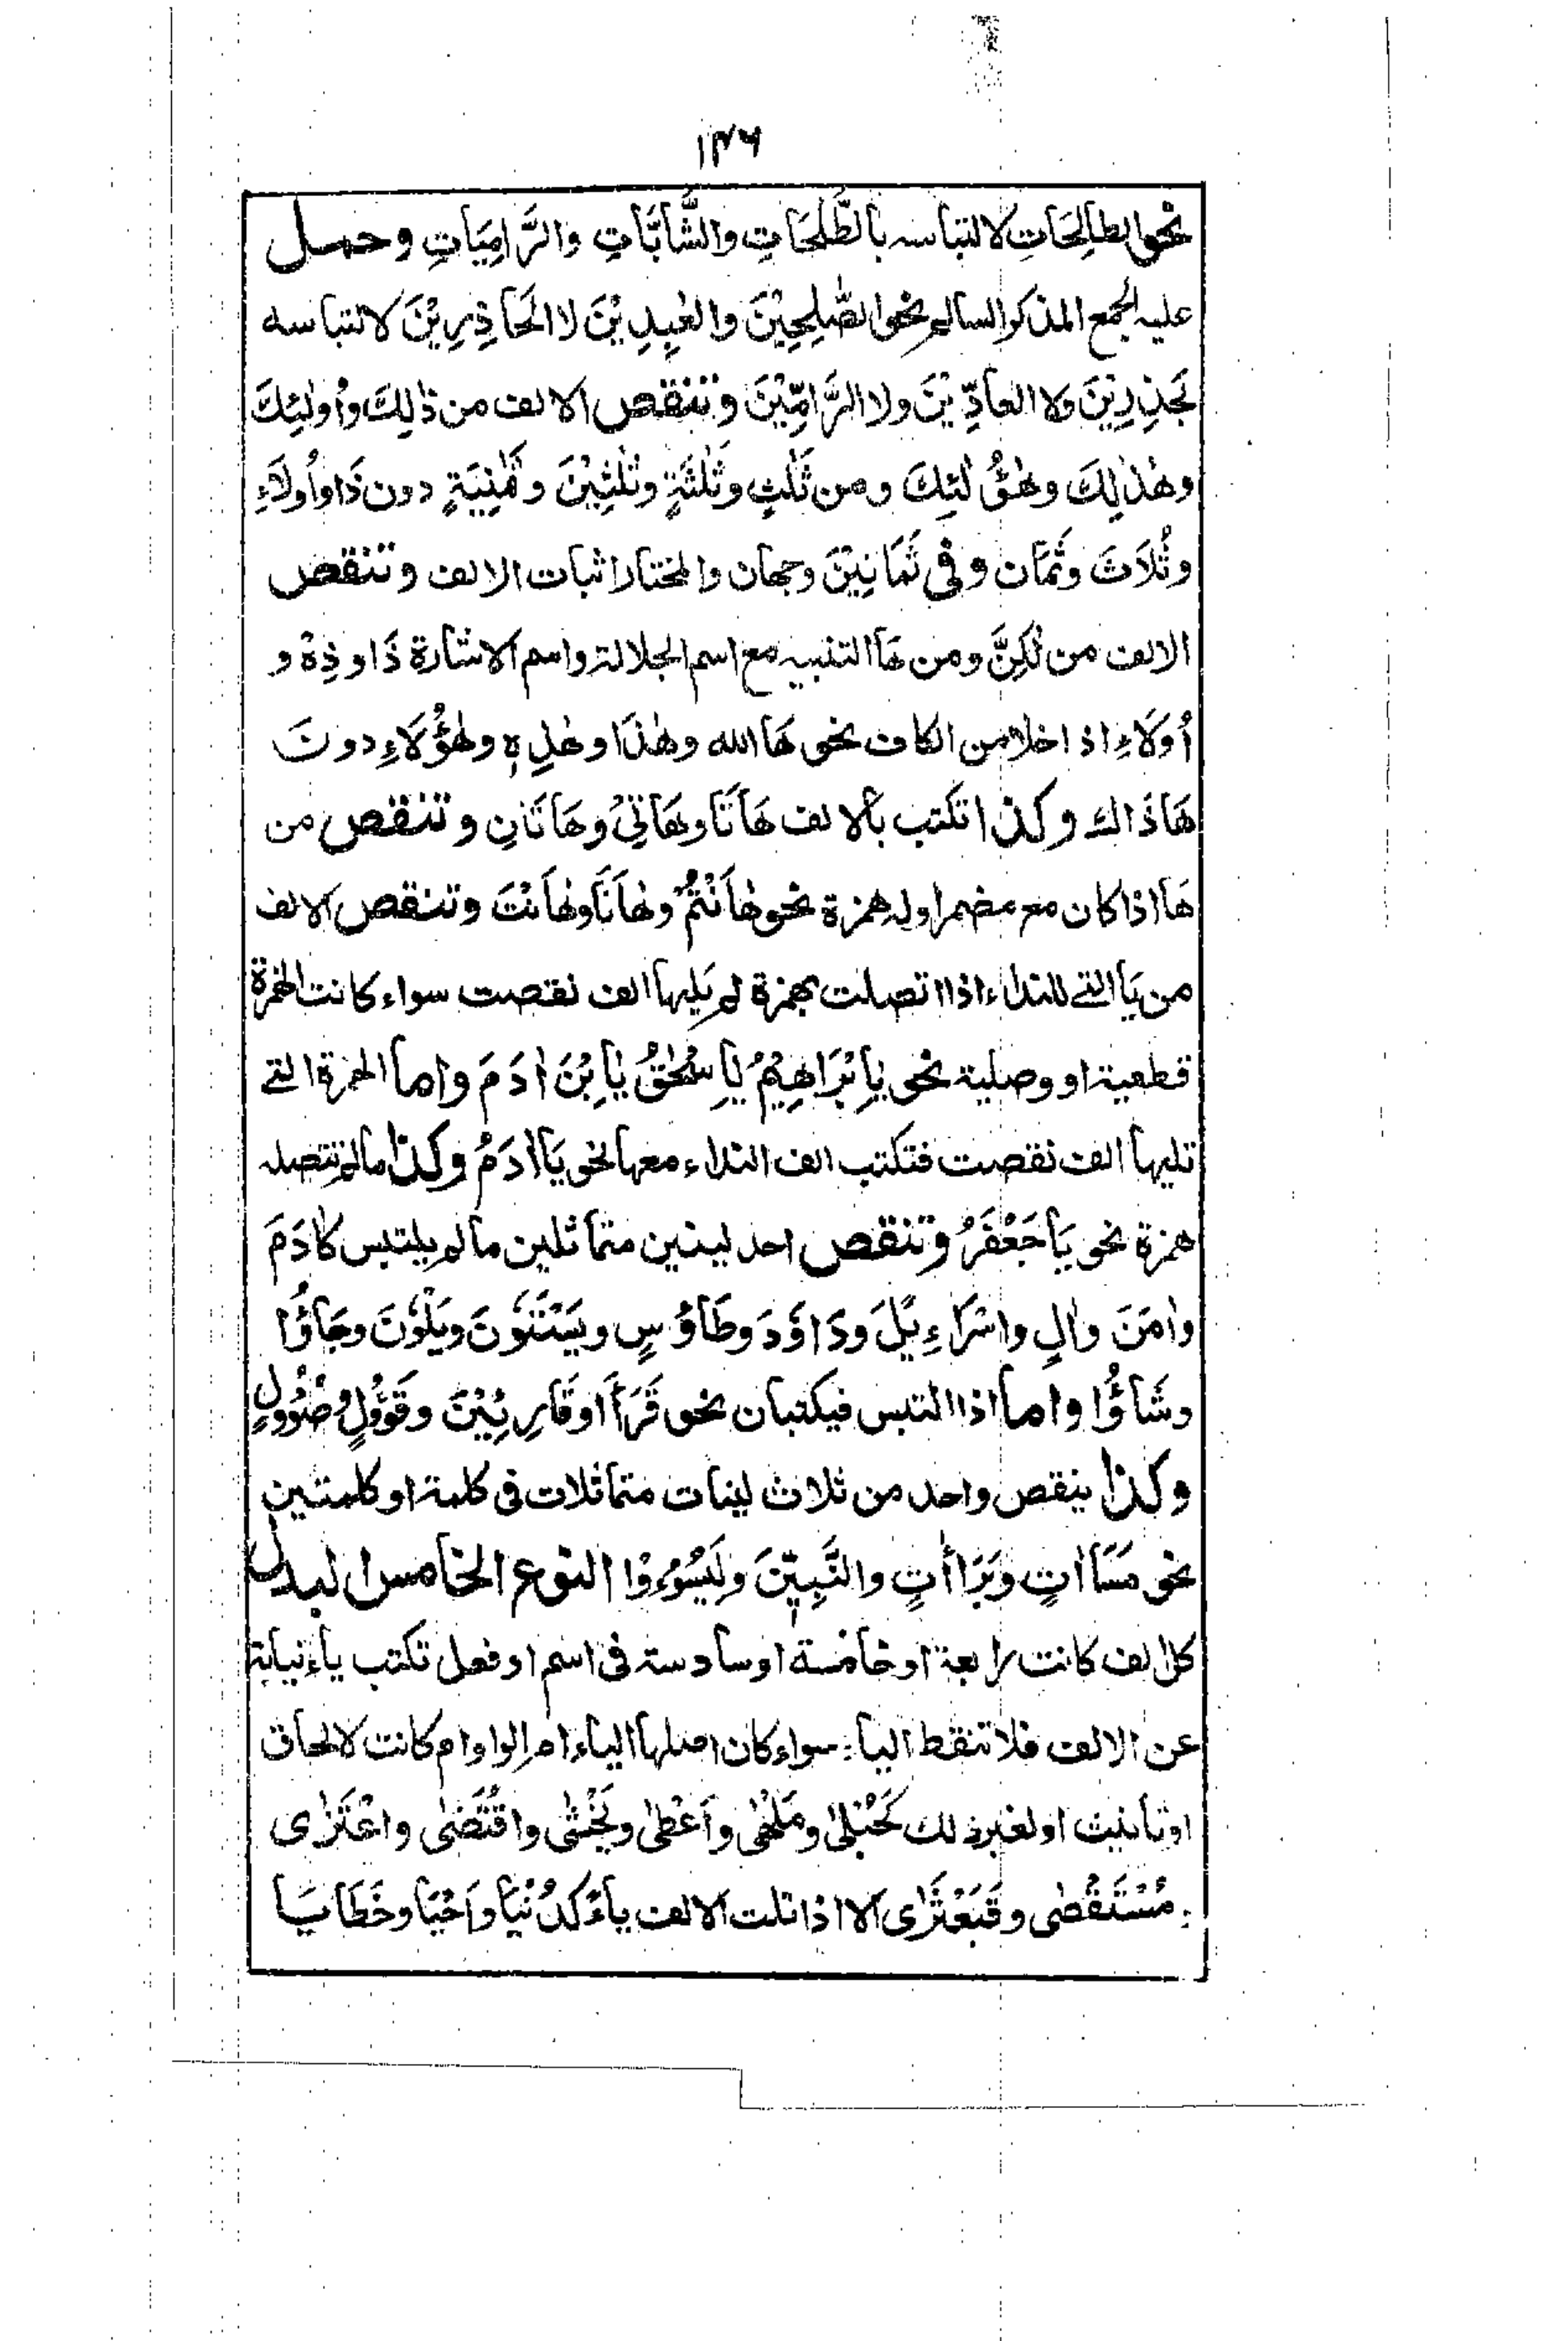 ۱۴۶
نحو الطالِحَاتِ لالتباسه بالطَّلَحَاتِ والشَّابَّاتِ والرَّامِيَاتِ وحمل
عليه الجمع المذكر السالم نحو الصّٰلِحِيْنَ والعٰبِدِيْنَ لا الحَاذِرِيْنَ لالتباسه
بحَذِرِيْنَ ولا العَادِّيْنَ ولا الرَّامِّيْنَ وتنقص الالف من ذٰلِكَ واُولٰئِكَ
وهٰذٰلِكَ وهٰؤُلٰئِكَ ومن ثَلٰثٍ وثَلٰثَةٍ وثَلٰثِيْنَ وثَمٰنِيَةٍ دون ذَا واُولَاءِ
وثُلَاثَ وثَمَان وفى ثَمَانِيْنَ وجهان والمختار اثبات الالف وتنقص
الالف من لٰكِنَّ ومن هَا التنبيه مع اسم الجلالة واسم الاشارة ذَا وذِهْ و
اُولَاءِ اذا خلا من الكاف نحو هَا الله وهٰذَا وهٰذِهٖ وهٰؤُلَاءِ دون
هَاذَاك وكذا تكتب بالالف هَاتَا وهَاتِيْ وهَاتَانِ وتنقص من
هَا اذا كان مع مضمر اوله همزة نحو هٰاَنْتُمْ وهٰاَنَا وهٰاَنْتَ وتنقص الالف
من يَا التى للنداء اذا اتصلت بهمزة لم يَلِيها الف نقصت سواء كانت الهمزة
قطعية او وصلية نحو يٰاِبْرَاهِيْمُ يٰاِسْحٰقُ يٰابْنَ اٰدَمَ واما الهمزة التى
تليها الف نقصت فتكتب الف النداء معها نحو يَا اٰدَمُ وكذا ما لم تتصله
همزة نحو يَا جَعْفَرُ وتنقص احد لينين متماثلين ما لم يلتبس كاٰدَمَ
واٰمَنَ واٰلٍ واِسْرَاءِيْلَ ودَاوٗدَ وطَاوٗسٍ ويَسْتَوٗنَ ويَلْوٗنَ وجَاؤُا
وشَاؤُا واما اذا التبس فيكتبان نحو قَرَأَا وقَارِئِيْنَ وقَوُوْلٍ وضَؤُوْلٍ
وكذا ينقص واحد من ثلاث لينات متماثلات فى كلمة او كلمتين
نحو مَسَاٰاتٍ وبَرَاٰاتٍ والنَّبِيّٖنَ ولِيَسُوْءٗوْا النوع الخامس البدل
كل الف كانت رابعة او خامسة او سادسة فى اسم او فعل تكتب ياء نيابة
عن الالف فلا تنقط الياء سواء كان اصلها الياء ام الواو ام كانت لالحاق
او تأنيث او لغير ذلك كَحُبْلٰى ومَلْهٰى واَعْطٰى ويَخْشٰى واقْتَضٰى واعْتَرٰى
مُسْتَقْصٰى وقَبَعْثَرٰى الا اذا تلت الالف ياءً كدُنْيَا واَحْيَا وخَطَايَا